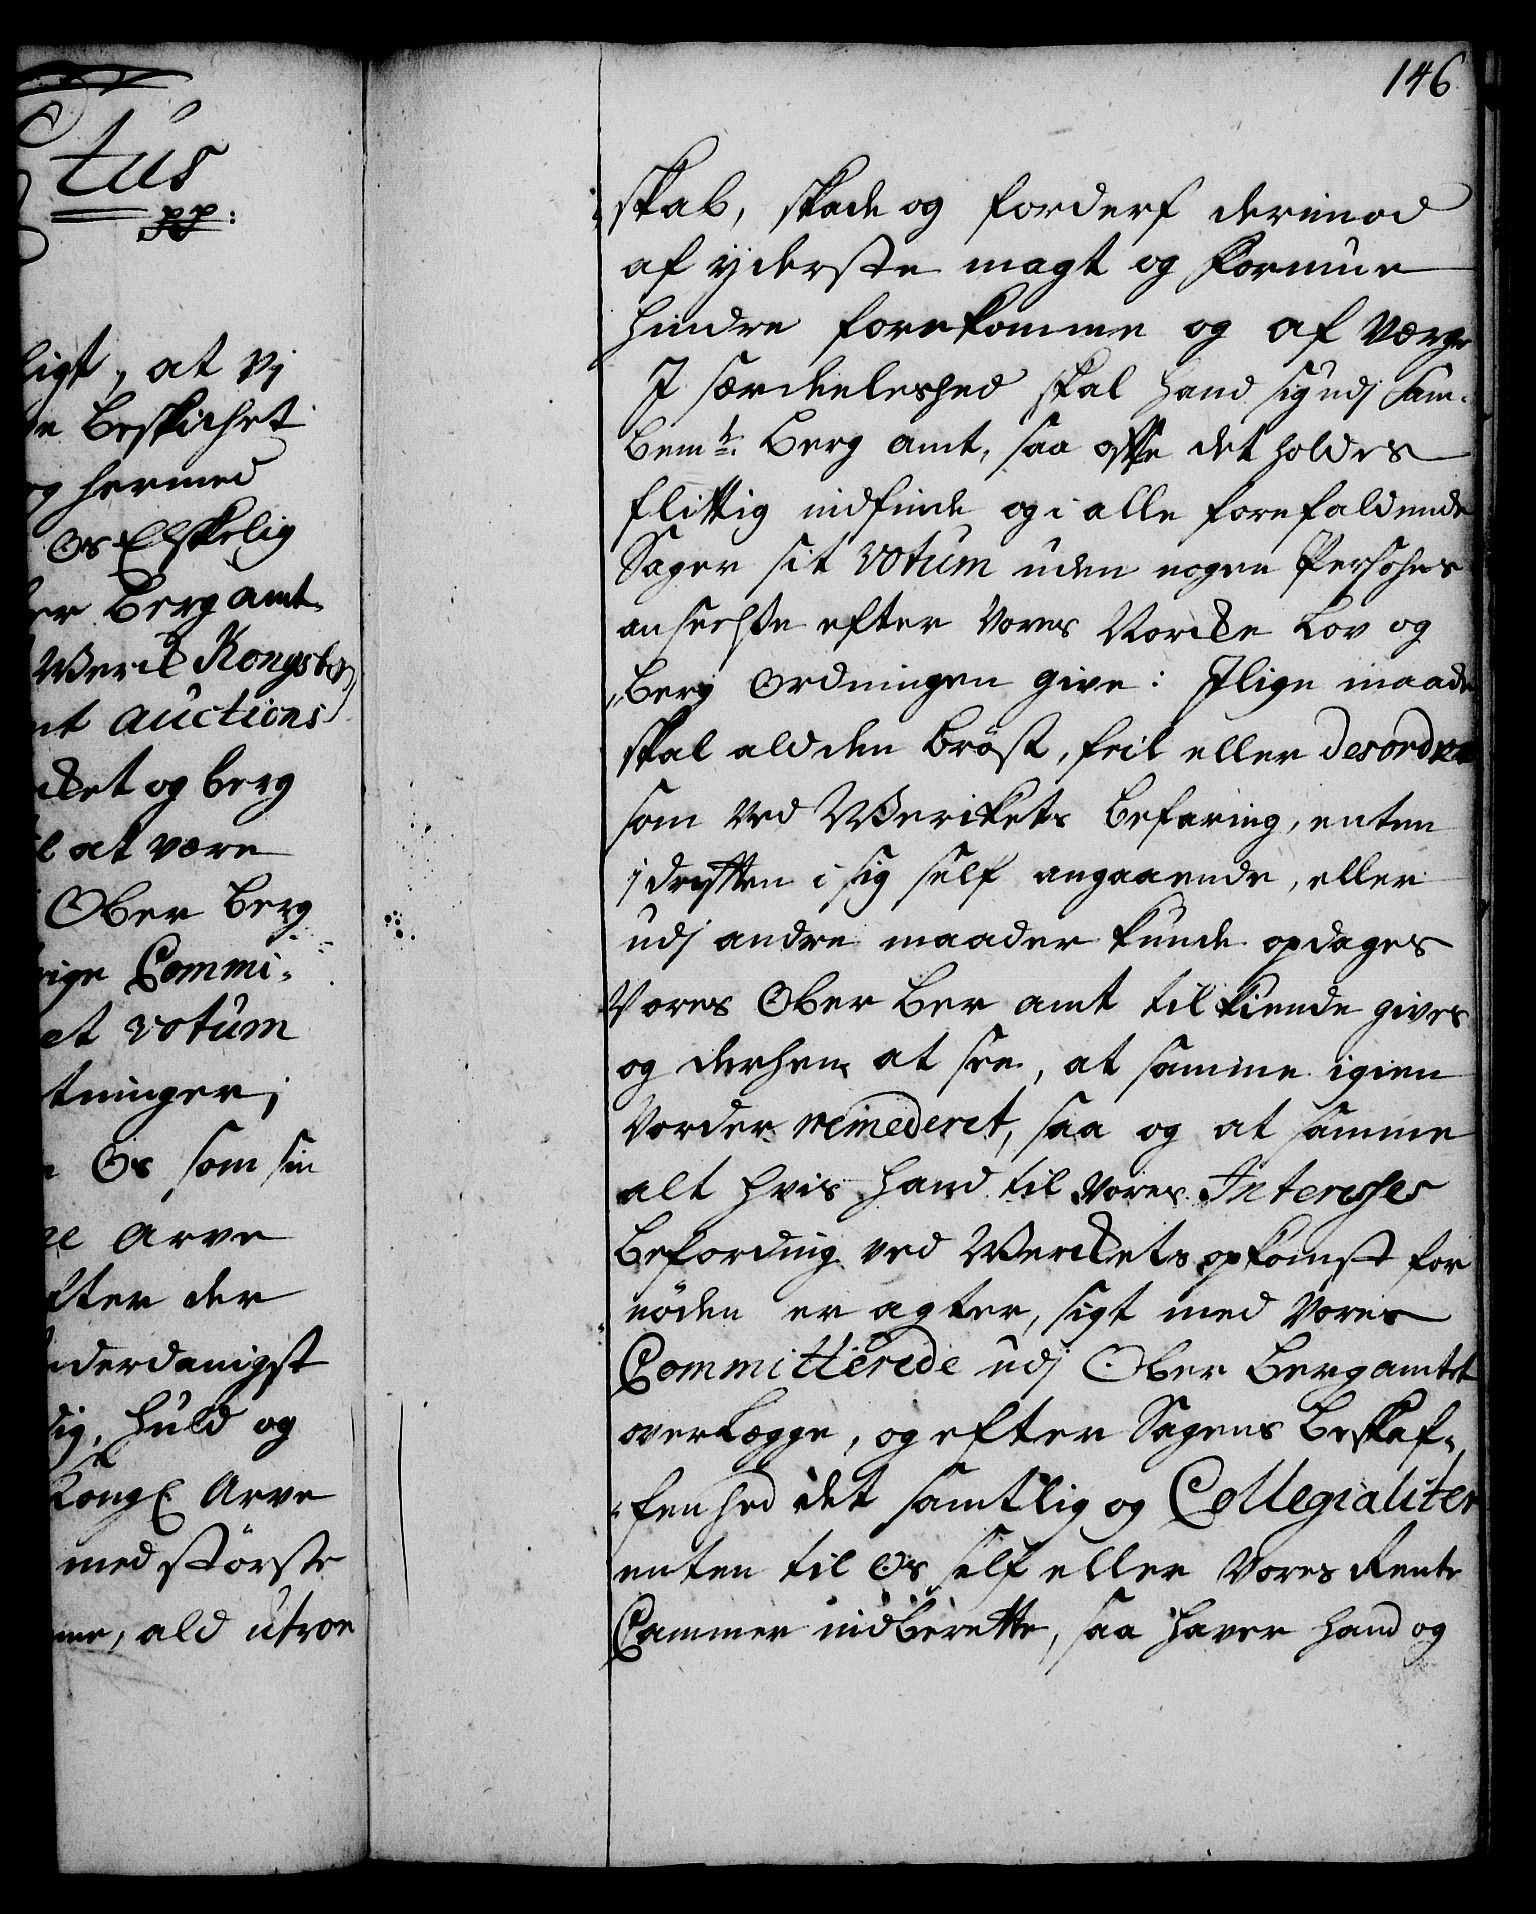 tus
pp:
ligt, at Vj
Beskichet
og hermed
Os Elskelig
Berg amt
Werck Kongsb
auctions
cket og berg
at være
Ober Berg
rige Commi-
et votum
tninger;
Os som sin
Arve
efter der
nderdanigst
huld og
Kongl Arve
med største
ald utroe
146
skab, skade og forderf derimod
af yderste magt og formue
hindre forekomme og af værge
I særdeeleshed skal hand sig udj sam-
bemte Berg amt, saa ofte det holdes
flittig indfinde og i alle forefaldende
Sager sit votum uden nogen Persohns
anseelse efter Vores Norske Lov og
Berg Ordningen give: Jlige maade
skal ald den Brøst, feil eller desordre
som ved Werckets befaring, enten
j driften i sig self angaaende, eller
udj andre maader kunde opdages
Vores Ober Ber amt tilkiende gives
og derhen at see, at samme igien
Vorder remederet, saa og at samme
alt hvis hand til Vores Interesses
Befording ved Werckets opkomst for
nöden er agter, sigt med Vores
Committerede udj Ober Bergamtet
overlægge, og efter Sagens Beskaf-
fenhed det samtlig og Collegialiter
enten til Os self eller Vores Rente
Cammer indberette, saa haver hand og